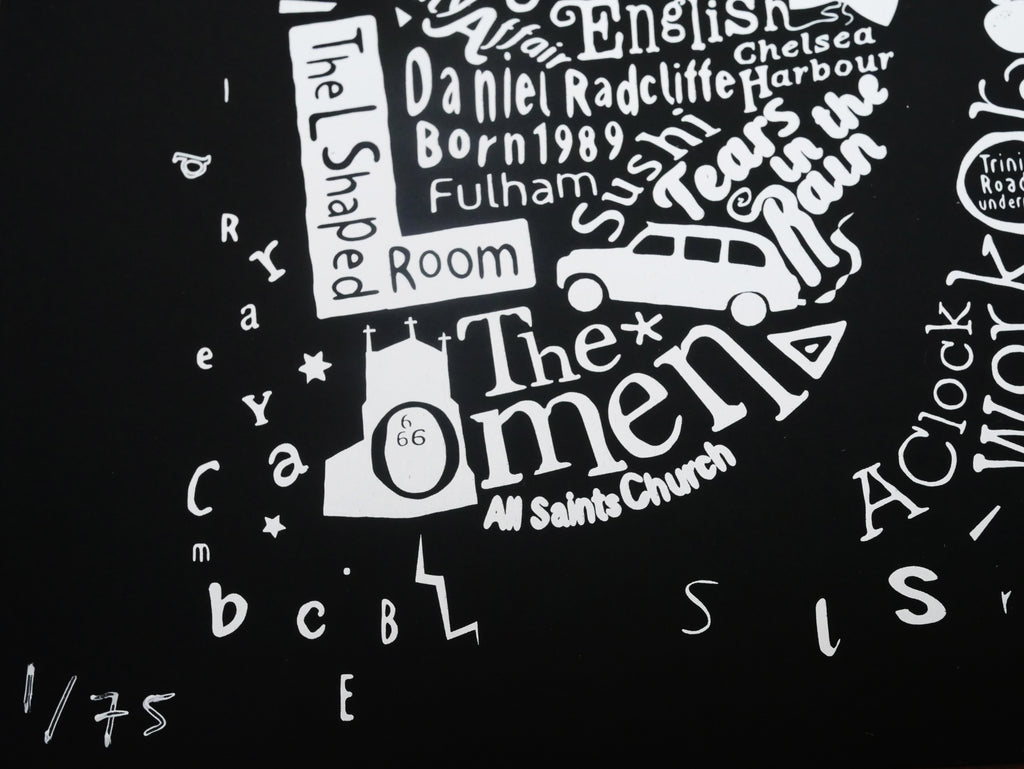 The L Shaped
Room
Affair
English
Chelsea
Harbour
Daniel Radcliffe
Born 1989
Fulham
Sushi
Tears
in the
Rain
The
Omen
6
66
All Saints Church
Trini
Road
under
A Clock
Work Ora
I
a
R
r
a
e
Y
a
C
m
b
c
B
E
S
l
S
r
1/75